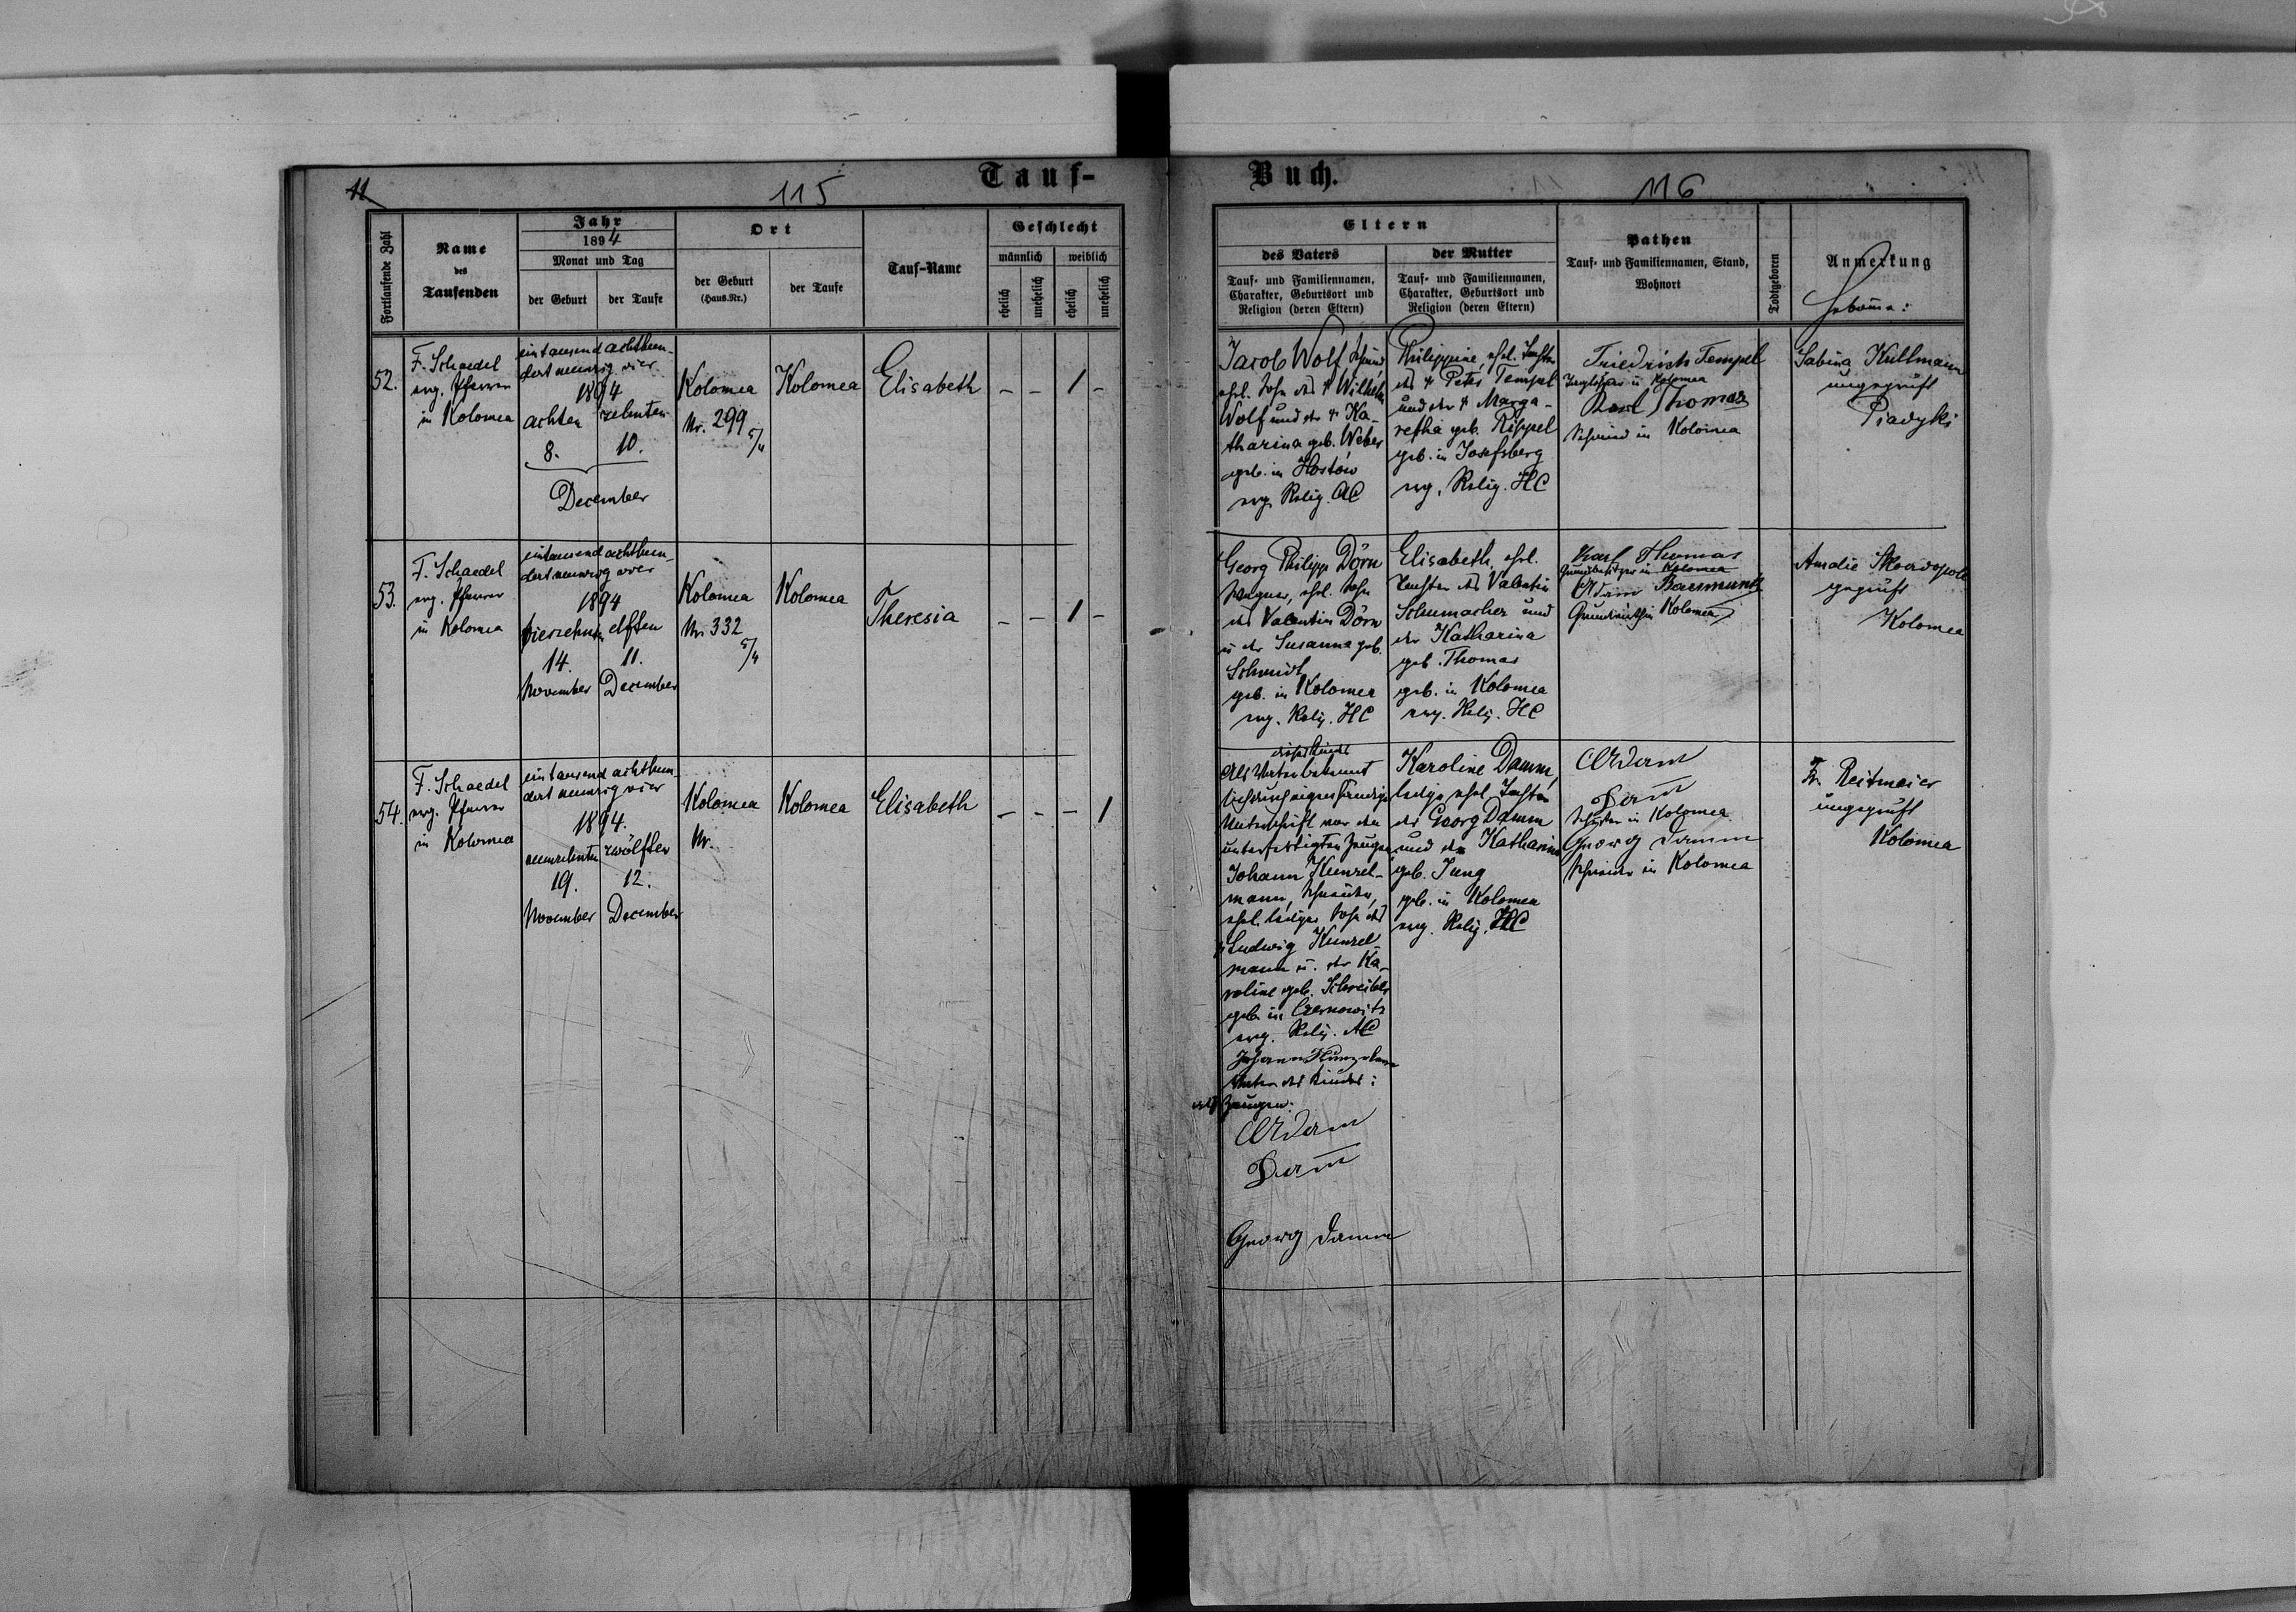 Tauf-
Buch.
11
115
116
Fortlaufende Zahl
Name
des
Taufenden
Jahr
1894
Monat und Tag
der Geburt
der Taufe
Ort
der Geburt
(Haus.Nr.)
der Taufe
Tauf-Name
Geschlecht
männlich
weiblich
ehelich
unehelich
ehelich
unehelich
Eltern
des Vaters
Tauf- und Familiennamen,
Charakter, Geburtsort und
Religion (deren Eltern)
der Mutter
Tauf- und Familiennamen,
Charakter, Geburtsort und
Religion (deren Eltern)
Pathen
Tauf- und Familiennamen, Stand,
Wohnort
Todtgeboren
Anmerkung
Hebame:
52.
F. Schaedel
evg. Pfarrer
in Kolomea
eintausend achthun-
dert neunzig vier
1894
achten
zehnten
8.
10.
December
Kolomea
Nr. 299
5/4
Kolomea
Elisabeth
- - 1 -
Jacob Wolf Schmied,
ehel. Sohn des † Wilhelm
Wolf und der † Ka-
tharina geb. Weber
geb. in Hostów
evg. Relig. AC
Philippine, ehel. Tochter
des † Peter Tempel
und der † Marga-
retha geb. Rippel
geb. in Josefsberg
evg. Relig. HC
Friedrich Tempel
in Kolomea
Karl Thomas
Schmied in Kolomea
Sabina Kullmann
ungeprüft
Piadyki
53.
F. Schaedel
evg. Pfarrer
in Kolomea
eintausend achthun-
dert neunzig vier
1894
vierzehnten
elften
14.
11.
November
December
Kolomea
Nr. 332
5/4
Kolomea
Theresia
- - 1 -
Georg Philipp Dörn
Wagner, ehel. Sohn
des Valentin Dörn
u. der Susanna geb.
Schmidt
geb. in Kolomea
evg. Relig. HC
Elisabeth, ehel.
Tochter des Valentin
Schumacher und
der Katharina
geb. Thomas
geb. in Kolomea
evg. Relig. HC
Karl Thomas
Grundbesitzer in Kolomea
Adam
Kolomea
Amalie
geprüft
Kolomea
54.
F. Schaedel
evg. Pfarrer
in Kolomea
eintausend achthun-
dert neunzig vier
1894.
neunzehnten
zwölften
19.
12.
November
December
Kolomea
Nr.
Kolomea
Elisabeth
- - - 1
dieses Kindes
Als Vater bekennt
sich durch eigenhändige
Unterschrift vor den
unterfertigten Zeugen
Johann Kunzel-
mann, Schneider,
ehel. lediger Sohn des
† Ludwig Kunzel-
mann u. der Ka-
roline geb. Schreiber
geb. in Czernowitz
evg. Relig. AC
Johann Kunzelmann
Vater des Kindes:
als Zeugen:
Adam
Dam̄
Georg Damm
Karoline Damm,
ledige ehel. Tochter
des Georg Damm
und der Katharina
geb. Jung
geb. in Kolomea
evg. Relig. HC
Adam
Dam̄
Schuster in Kolomea
Georg Damm
Schneider in Kolomea
Fr. Reitmaier
ungeprüft
Kolomea